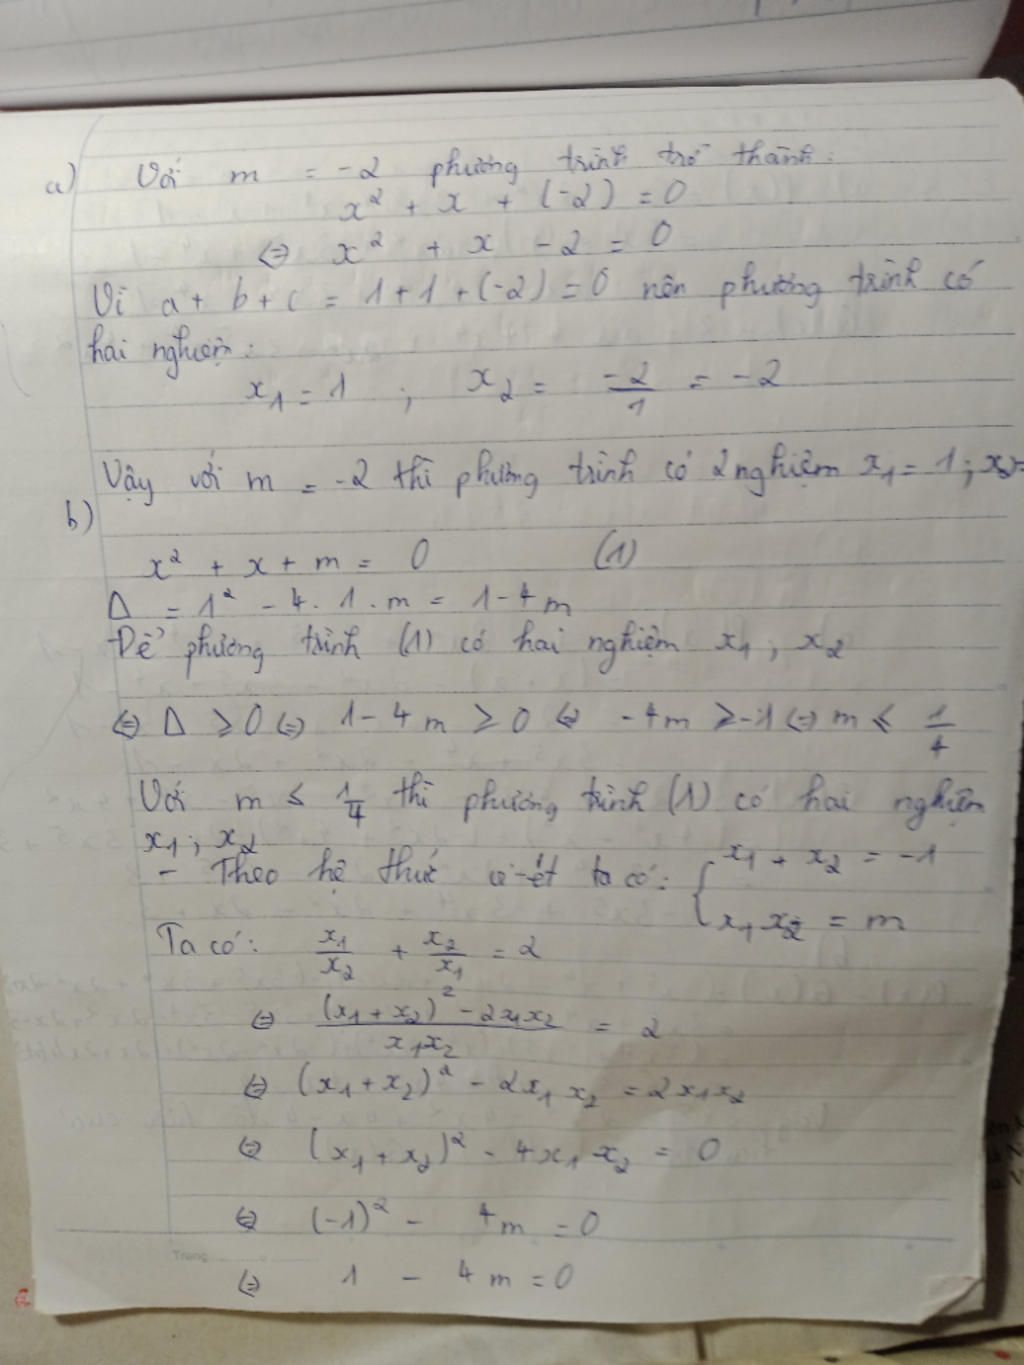 a) Với m = -2 phương trình trở thành:
x² + x + (-2) = 0
⇔ x² + x - 2 = 0
Vì a + b + c = 1 + 1 + (-2) = 0 nên phương trình có
hai nghiệm:
x₁ = 1 ; x₂ = -2/1 = -2
Vậy với m = -2 thì phương trình có 2 nghiệm x₁ = 1 ; x₂ =
b)
x² + x + m = 0 (1)
Δ = 1² - 4.1.m = 1 - 4m
Để phương trình (1) có hai nghiệm x₁ ; x₂
⇔ Δ ≥ 0 ⇔ 1 - 4m ≥ 0 ⇔ -4m ≥ -1 ⇔ m ≤ 1/4
Với m ≤ 1/4 thì phương trình (1) có hai nghiệm
x₁ ; x₂
- Theo hệ thức vi-ét ta có: { x₁ + x₂ = -1
x₁x₂ = m
Ta có: x₁/x₂ + x₂/x₁ = 2
⇔ ((x₁ + x₂)² - 2x₁x₂)/(x₁x₂) = 2
⇔ (x₁ + x₂)² - 2x₁x₂ = 2x₁x₂
⇔ (x₁ + x₂)² - 4x₁x₂ = 0
⇔ (-1)² - 4m = 0
Trang
⇔ 1 - 4m = 0